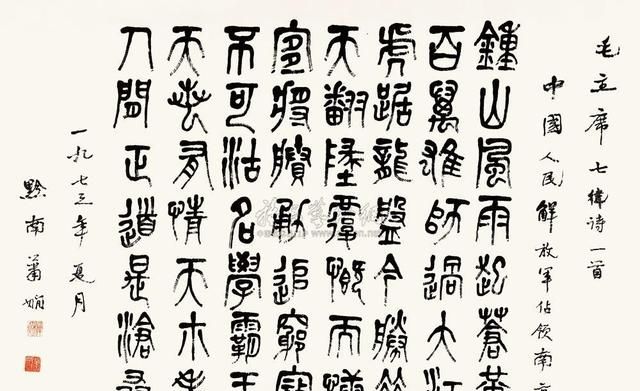 毛主席七律诗一首
中國人民解放军佔领南京
鍾山風雨起蒼黄
百萬雄師過大江
虎踞龍盤今勝昔
天翻墬覆慨而慷
宜將賸勇追窮寇
不可沽名學霸王
天若有情天亦老
人間正道是滄桑
一九七三年夏月
黔南萧娴